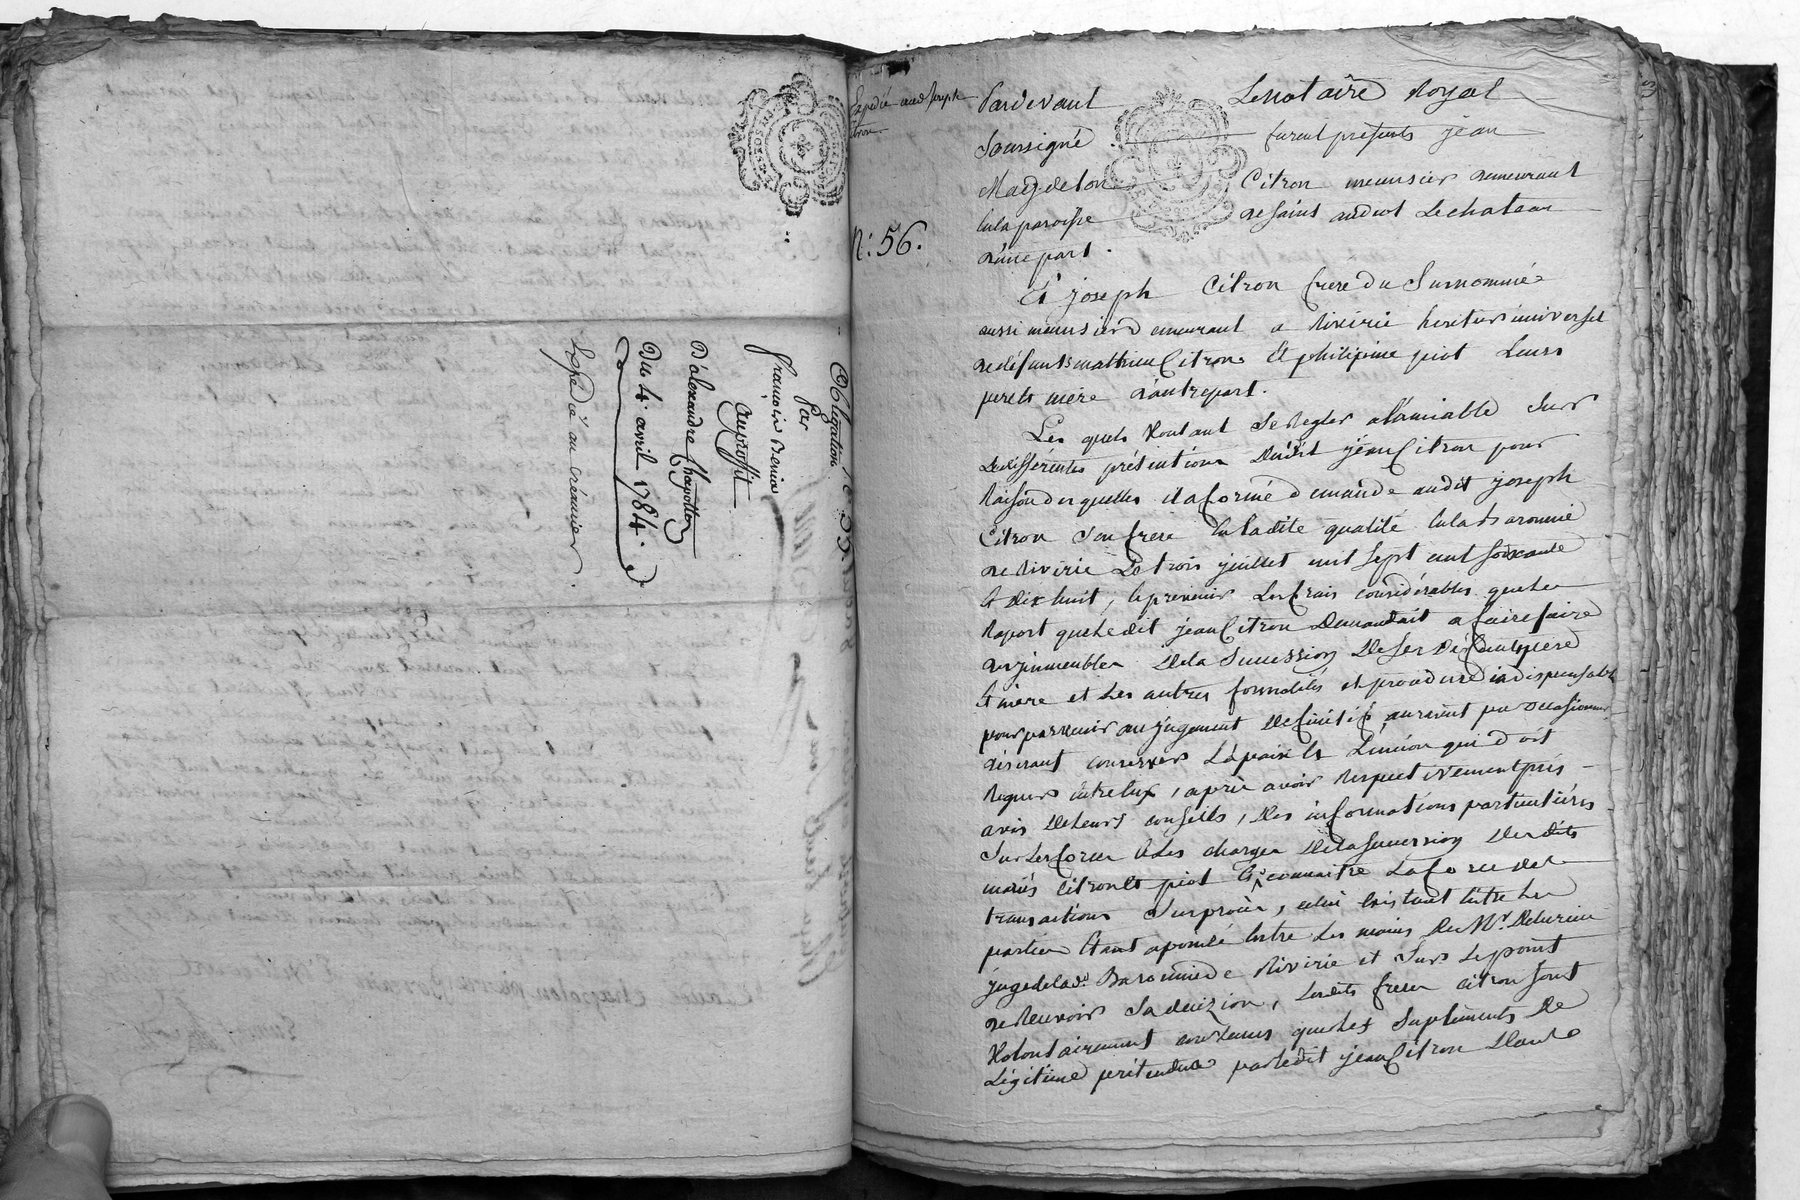 Obligation
Par
François Benier
Auproffit
D'alexandre Chapotton
Du 4 avril 1784.
Expedié au créancier.
Expedié aud Joseph
Citron
N: 56.
Pardevant Le notaire Royal
Soussigné furent présents jean
Magdelon Citron meusnier demeurant
en la paroisse de saint andéol Le chateau
d'une part.
Et joseph Citron frere du Surnommé
aussi meusnier demeurant a Riverie heritier universel
de défunts mathieu Citron Et philipine piot Leurs
pere et mere d'autre part.
Les quels voulant Se Regler a l'amiable Sur
Les différentes prétentions dudit jean Citron pour
Raison des quelles il a formé demande audit joseph
Citron Son frere En ladite qualité En la Baronnie
de Riverie Le trois juillet mil Sept cent Soixante
Et dix huit, Et prevenir Les frais considérables que Le
Raport que Ledit jean Citron Demandait a faire faire
des jmmeubles De la Succession De Ses Défunts pere
Et mere et Les autres formalités et procedures indispensables
pour parvenir au jugement Définitif, auraient pu occasionner
désirant conserver La paix Et L'union qui doit
Regner Entre Eux, après avoir Respectivement pris
avis De Leurs conseils, Des informations particulières
Sur Les forces Et Les charges De la Succession Desdits
mariés Citron Et piot Et connaitre La force des
transactions Sur procès, celui Existant Entre Les
parties Etant apointé Entre Les mains De Mr.
juge de lad. Baronnie de Riverie et Sur Le point
de Recevoir Sa décizion, Lesdits freres Citron Sont
volontairement convenus que Les Suplements De
Légitime prétendus par Ledit jean Citron Dans